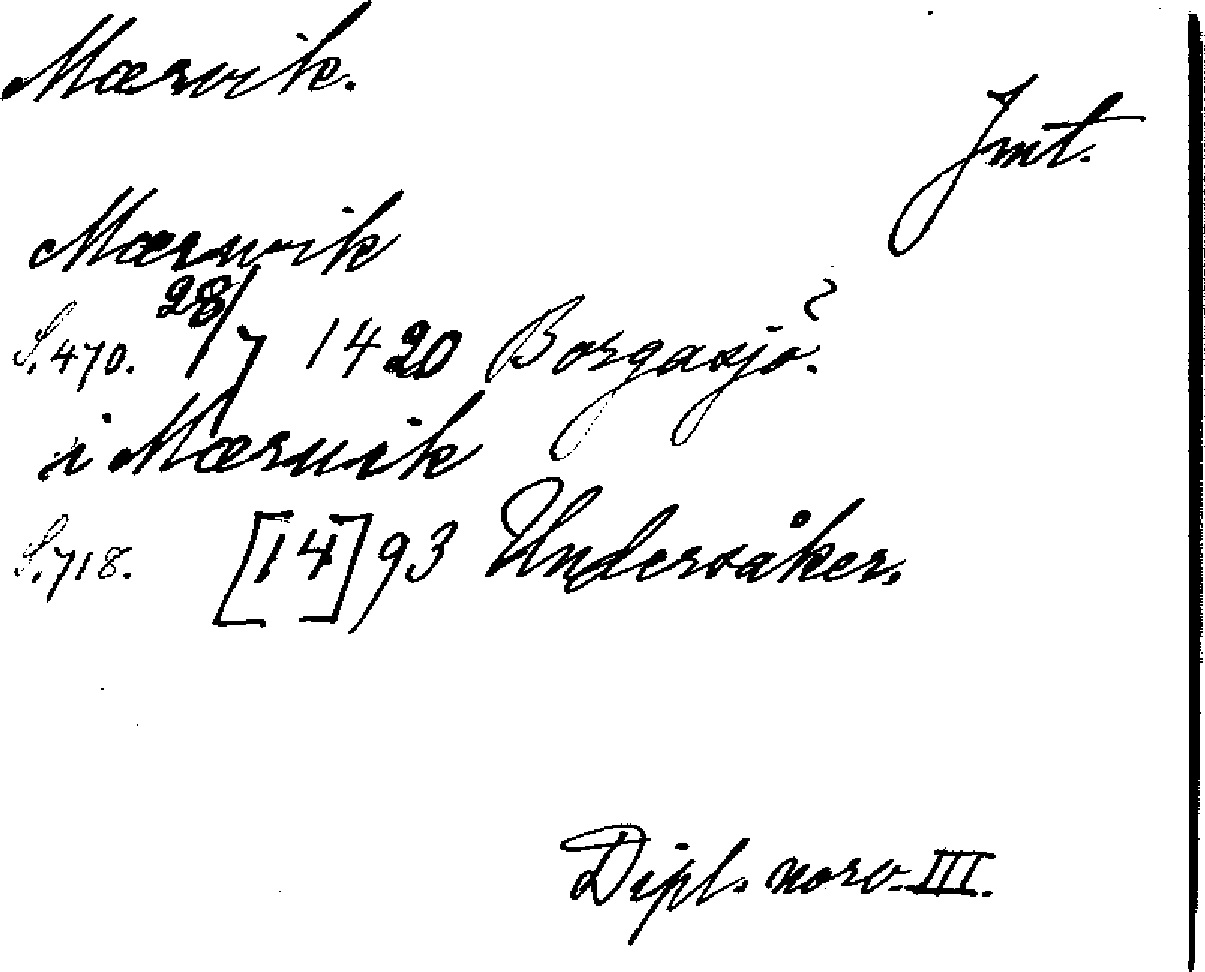 Mærvik.
Jmt.
Mærwik
S. 470. 28/7 1420 Borgasjö.
i Mæruik
S. 718. [14]93 Undersåker.
Dipl. norv. III.